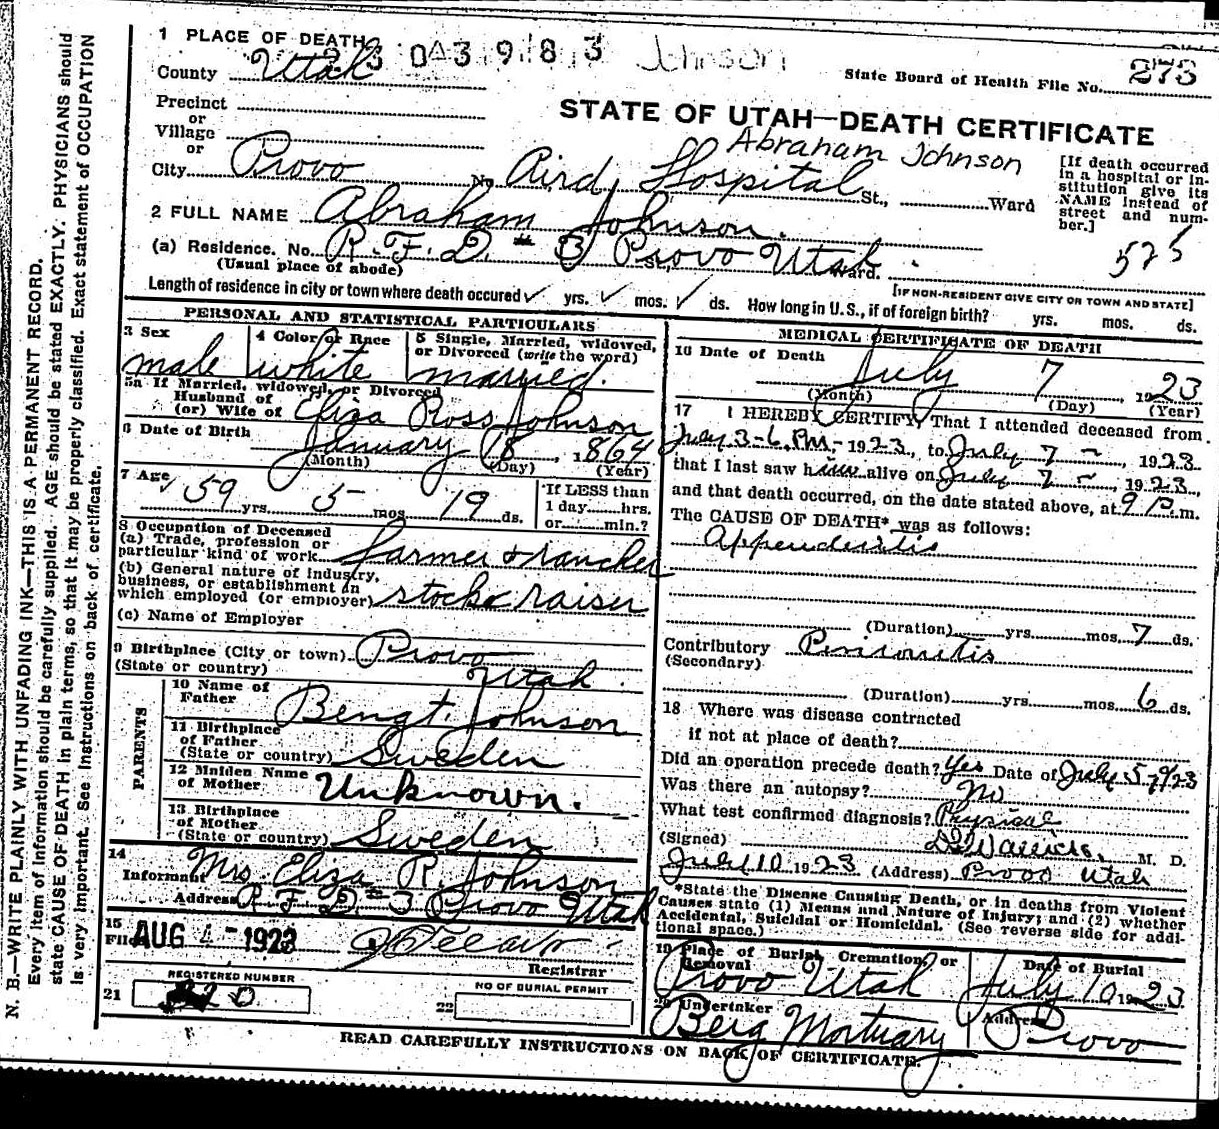 1 PLACE OF DEATH
2303983 Johnson
County Utah
State Board of Health File No. 273
Precinct
or
Village
or
STATE OF UTAH—DEATH CERTIFICATE
Abraham Johnson
City Provo No. Aird Hospital St., Ward
[If death occurred in a hospital or institution give its NAME instead of street and number.]
2 FULL NAME Abraham Johnson.
575
(a) Residence. No. R. F. D. # 3 St., Provo Utah. Ward.
(Usual place of abode)
[IF NON-RESIDENT GIVE CITY OR TOWN AND STATE]
Length of residence in city or town where death occured ✓ yrs. ✓ mos. ✓ ds. How long in U. S., if of foreign birth? yrs. mos. ds.
PERSONAL AND STATISTICAL PARTICULARS
3 Sex
male
4 Color or Race
white
5 Single, Married, widowed, or Divorced (write the word)
married.
5a If Married, widowed, or Divorced
Husband of
(or) Wife of Eliza Ross Johnson
6 Date of Birth January 18, 1864
(Month) (Day) (Year)
7 Age ✓ 59 yrs. 5 mos. 19 ds.
If LESS than
1 day......hrs.
or......min.?
8 Occupation of Deceased
(a) Trade, profession or
particular kind of work farmer & rancher
(b) General nature of industry,
business, or establishment in
which employed (or employer) stock raiser
(c) Name of Employer
9 Birthplace (City or town) Provo
(State or country) Utah.
PARENTS
10 Name of
Father Bengt. Johnson
11 Birthplace
of Father
(State or country) Sweden
12 Maiden Name
of Mother Unknown.
13 Birthplace
of Mother
(State or country) Sweden
14
Informant Mrs. Eliza R. Johnson
Address R. F. D. # 3 Provo Utah
15
Filed AUG 4 - 1923
Registrar
REGISTERED NUMBER
21 20
NO OF BURIAL PERMIT
22
MEDICAL CERTIFICATE OF DEATH
16 Date of Death
July 7, 1923
(Month) (Day) (Year)
17 I HEREBY CERTIFY, That I attended deceased from
July 3-6. PM, - 1923., to July 7 -, 1923
that I last saw him alive on July 7 -, 1923,
and that death occurred, on the date stated above, at 9 P.m.
The CAUSE OF DEATH* was as follows:
Appendicitis
(Duration) yrs. mos. 7 ds.
Contributory Peritonitis
(Secondary)
(Duration) yrs. mos. 6 ds.
18 Where was disease contracted
if not at place of death?
Did an operation precede death? Yes Date of July 5, 1923
Was there an autopsy? No
What test confirmed diagnosis? Physical
(Signed) M. D.
July 10 1923 (Address) Provo Utah
*State the Disease Causing Death, or in deaths from Violent
Causes state (1) Means and Nature of Injury; and (2) whether
Accidental, Suicidal or Homicidal. (See reverse side for addi-
tional space.)
19 Place of Burial, Cremation, or
Removal
Provo Utah
Date of Burial
July 10 1923.
20 Undertaker
Berg Mortuary
Address
Provo
READ CAREFULLY INSTRUCTIONS ON BACK OF CERTIFICATE.
N. B.—WRITE PLAINLY WITH UNFADING INK—THIS IS A PERMANENT RECORD.
Every item of information should be carefully supplied. AGE should be stated EXACTLY. PHYSICIANS should
state CAUSE OF DEATH in plain terms, so that it may be properly classified. Exact statement of OCCUPATION
is very important. See instructions on back of certificate.